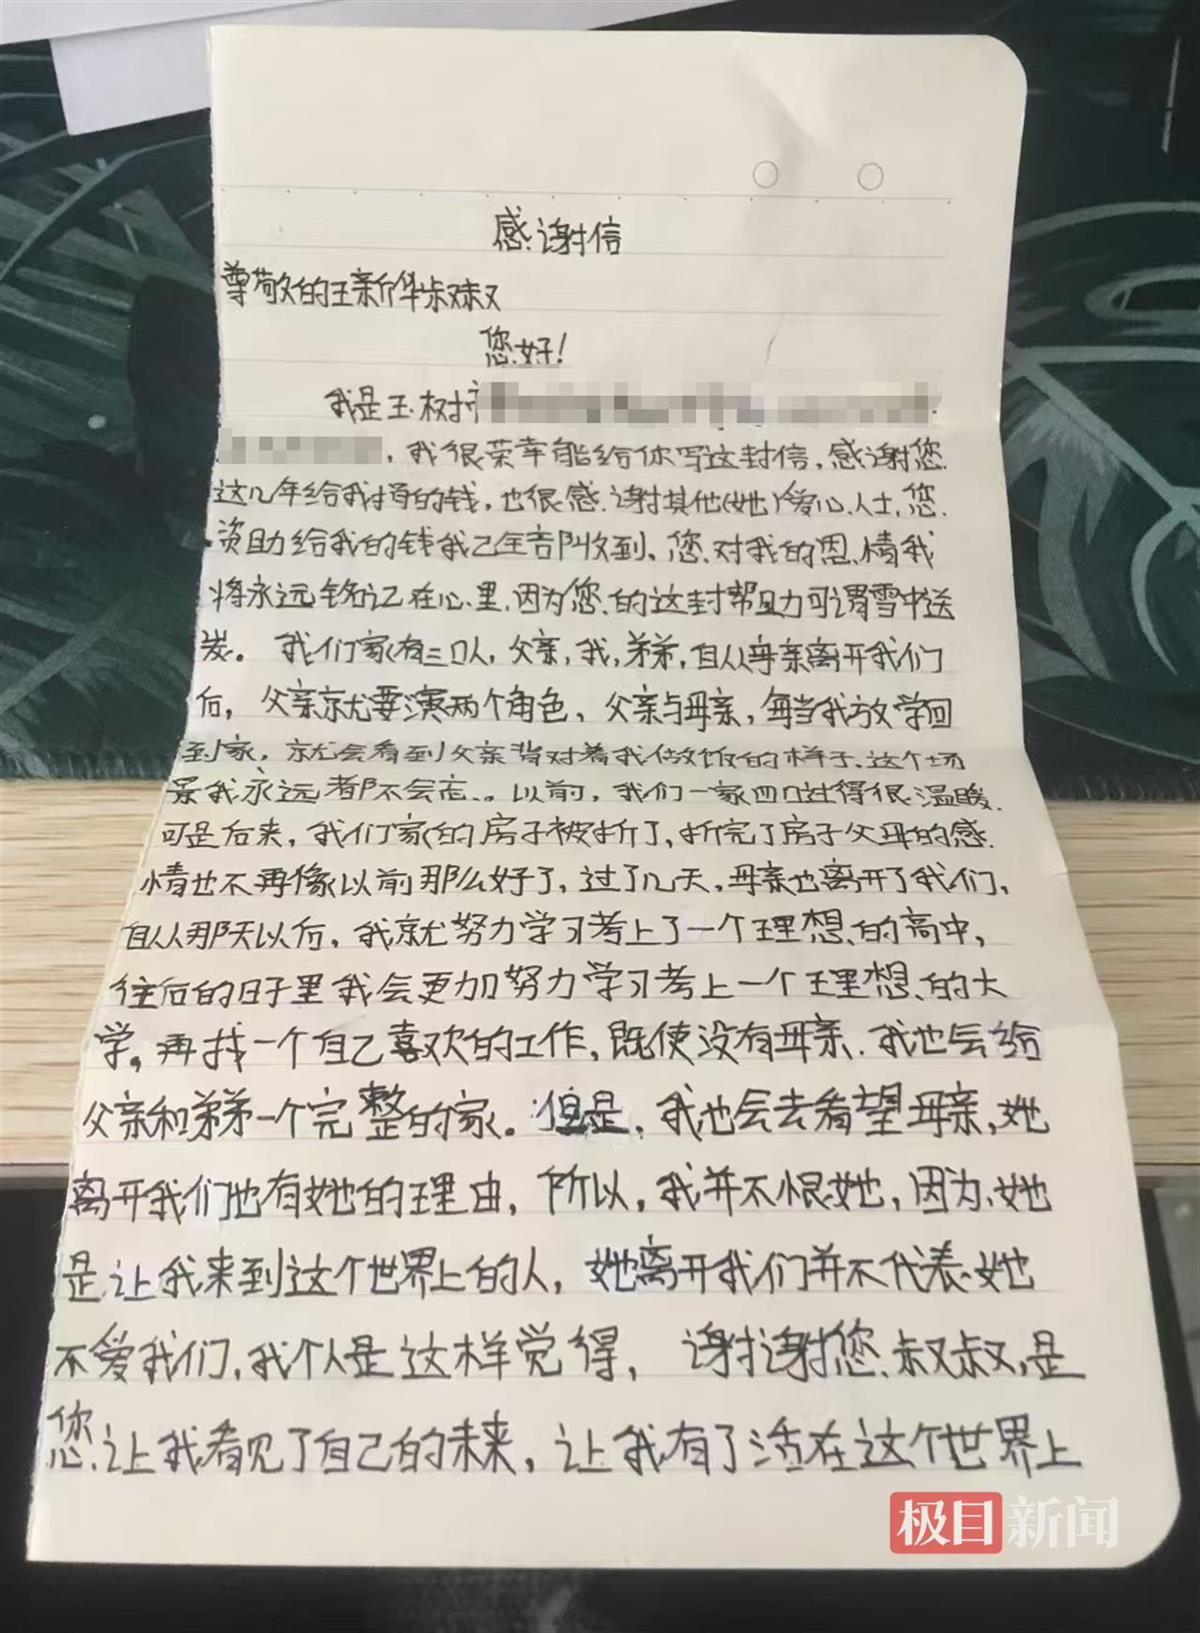 感谢信
尊敬的王新华叔叔
您好！
我是玉树市
，我很荣幸能给你写这封信，感谢您
这几年给我捐的钱，也很感谢其他(她)爱心人士，您
资助给我的钱我已全部收到，您对我的恩情我
将永远铭记在心里，因为您的这封帮助可谓雪中送
炭。我们家有三口人，父亲，我，弟弟，自从母亲离开我们
后，父亲就要演两个角色，父亲与母亲，每当我放学回
到家，就会看到父亲背对着我做饭的样子，这个场
景我永远都不会忘。以前，我们一家四口过得很温暖，
可是后来，我们家的房子被折了，折完了房子父母的感
情也不再像以前那么好了，过了几天，母亲也离开了我们，
自从那天以后，我就努力学习考上了一个理想的高中，
往后的日子里我会更加努力学习考上一个理想的大
学，再找一个自己喜欢的工作，既使没有母亲，我也会给
父亲和弟弟一个完整的家。但是，我也会去看望母亲，她
离开我们也有她的理由，所以，我并不恨她，因为她
是让我来到这个世界上的人，她离开我们并不代表她
不爱我们，我个人是这样觉得，谢谢您，叔叔，是
您让我看见了自己的未来，让我有了活在这个世界上
极目新闻